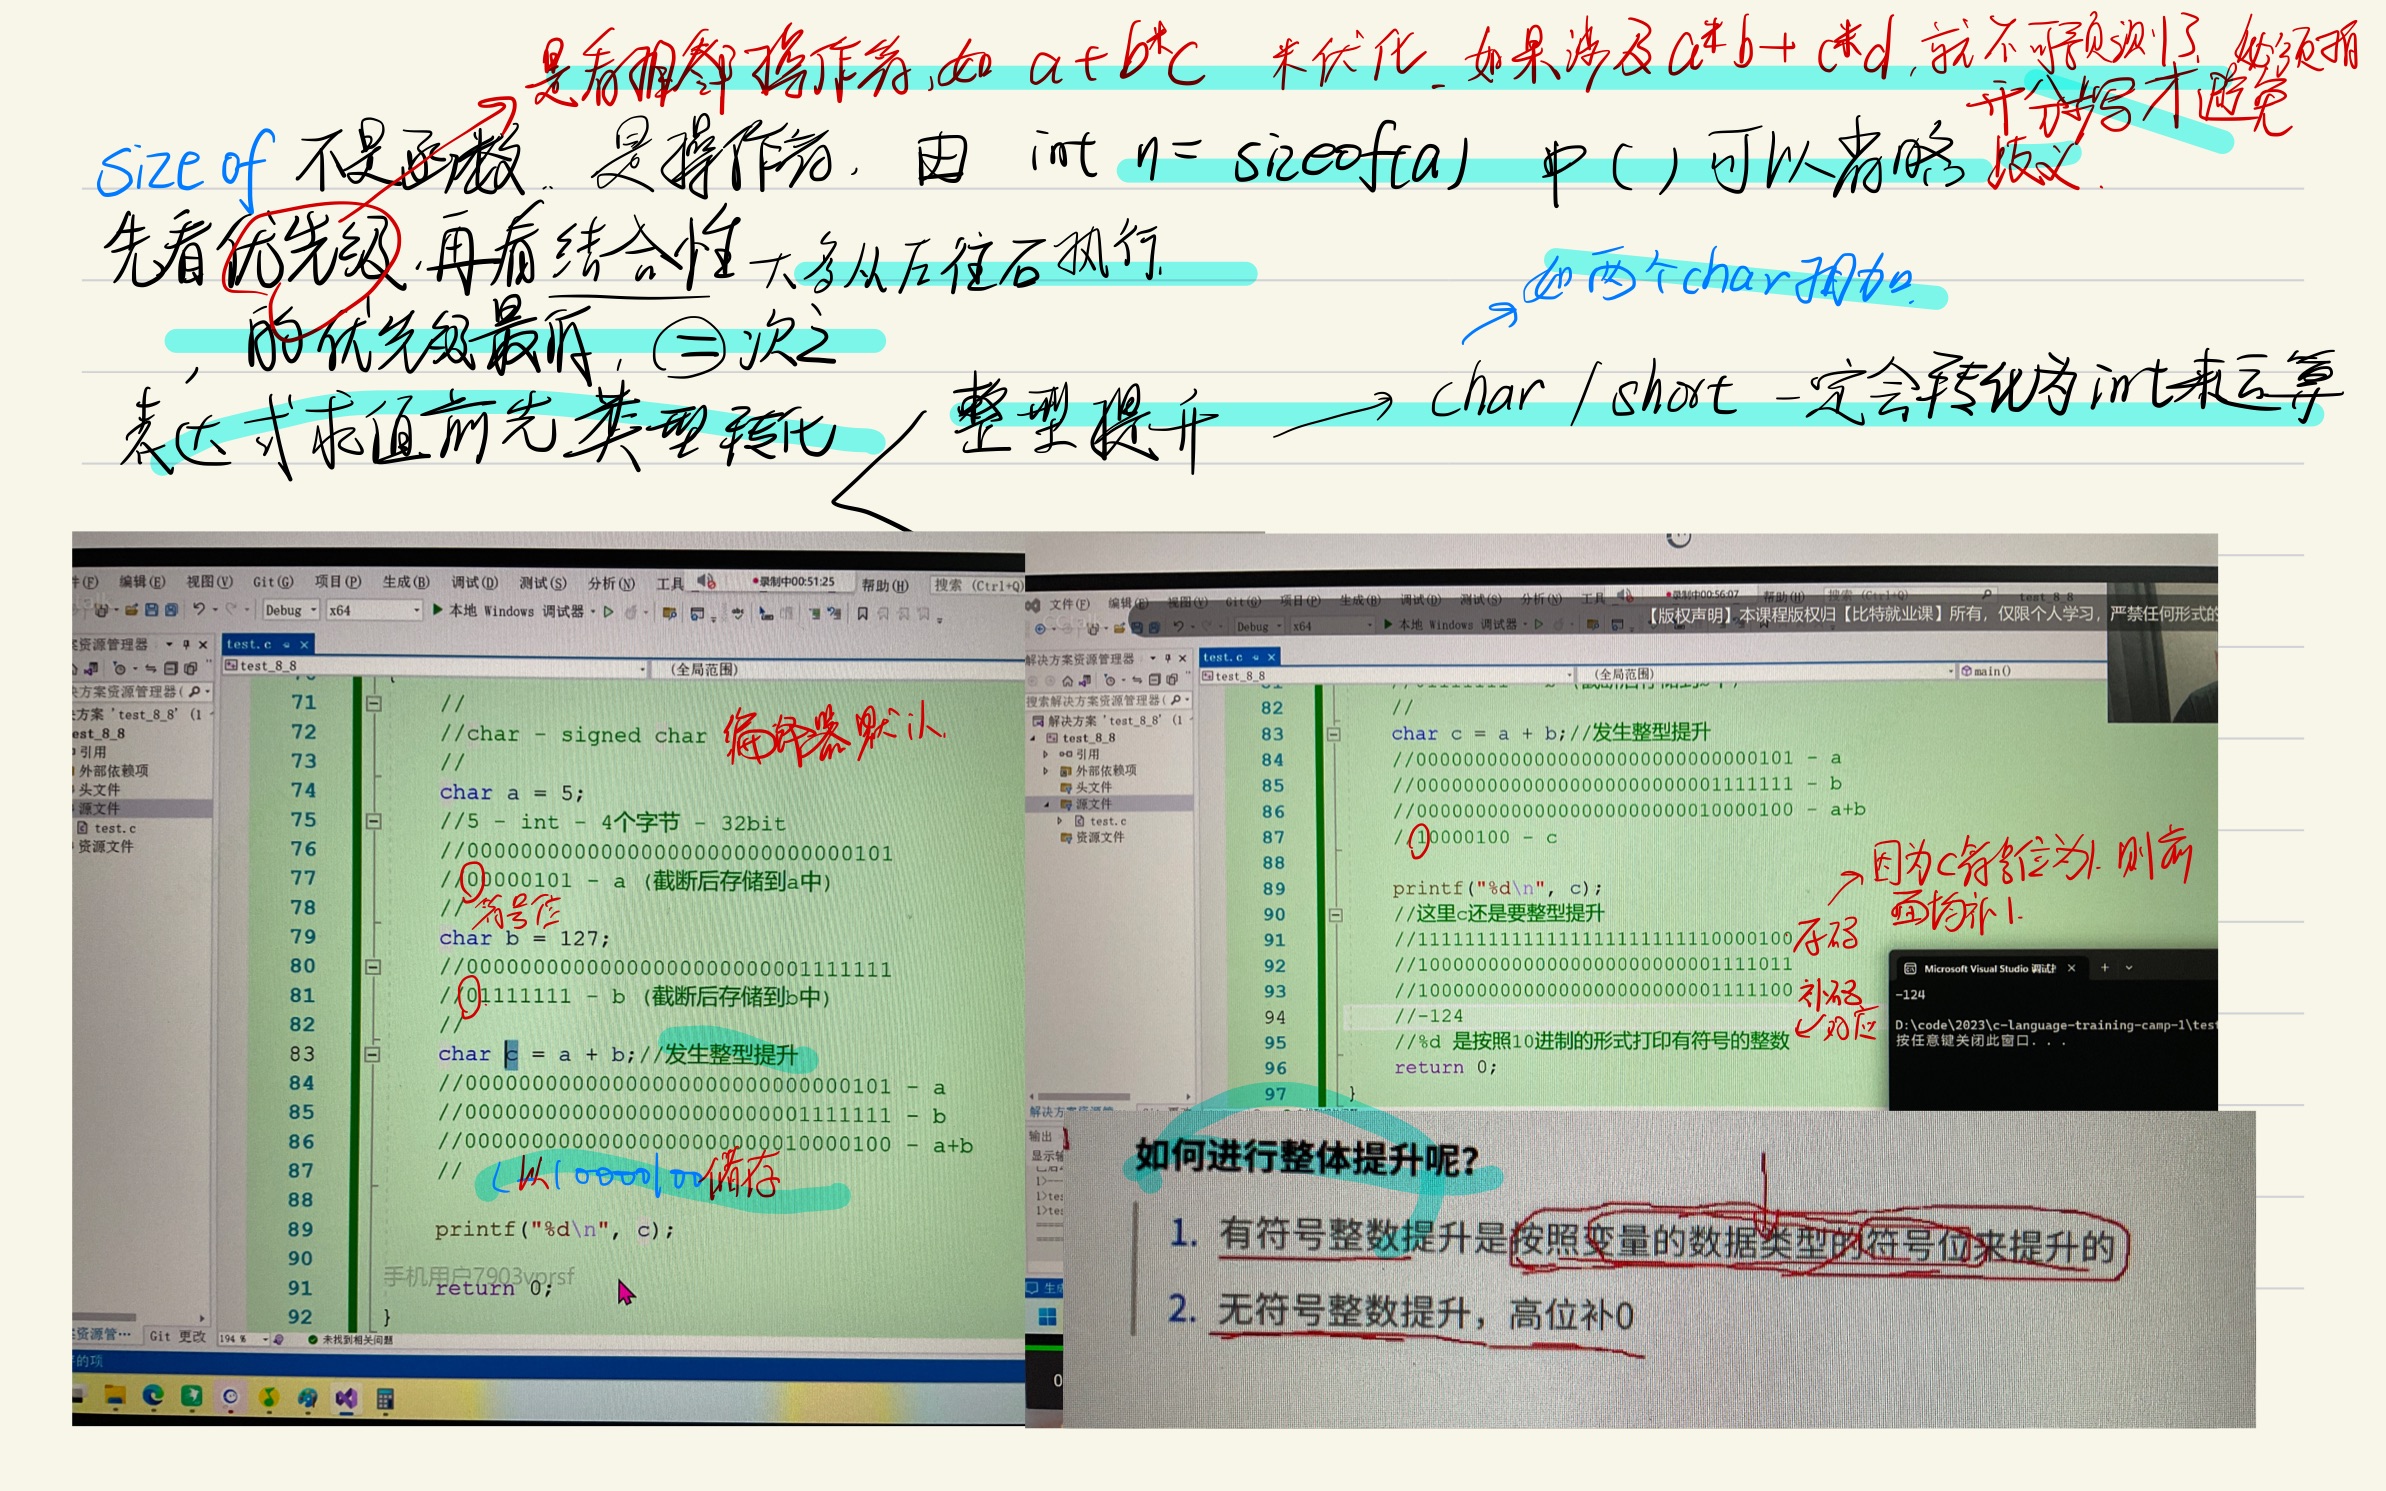 是看相邻操作符,如 a+b*c 来优化. 如果涉及a*b+c*d,就不可预测了. 必须拆
开分步写才避免
歧义.
sizeof 不是函数. 是操作符. 由 int n = sizeof(a) 中()可以省略
先看优先级.再看结合性 大多从左往右执行.
如两个char相加.
,的优先级最低, = 次之
表达式求值前先类型转化
整型提升 → char / short 一定会转化为int来运算
件(F) 编辑(E) 视图(V) Git(G) 项目(P) 生成(B) 调试(D) 测试(S) 分析(N) 工具 录制中00:51:25 帮助(H) 搜索 (Ctrl+Q)
Debug x64 本地 Windows 调试器
资源管理器
test.c
test_8_8
(全局范围)
方案资源管理器(
方案 'test_8_8' (1
est_8_8
引用
外部依赖项
头文件
源文件
test.c
资源文件
71 //
72 //char - signed char 编译器默认.
73 //
74 char a = 5;
75 //5 - int - 4个字节 - 32bit
76 //00000000000000000000000000000101
77 //00000101 - a (截断后存储到a中)
78 // 符号位
79 char b = 127;
80 //00000000000000000000000001111111
81 //01111111 - b (截断后存储到b中)
82 //
83 char c = a + b;//发生整型提升
84 //00000000000000000000000000000101 - a
85 //00000000000000000000000001111111 - b
86 //00000000000000000000000010000100 - a+b
87 // 以10000100储存
88
89 printf("%d\n", c);
90
手机用户7903vprsf
91 return 0;
92 }
资源管… Git 更改 194 % 未找到相关问题
的项
文件(F) 编辑(E) 视图(V) Git(G) 项目(P) 生成(B) 调试(D) 测试(S) 分析(N) 工具 录制中00:56:07 帮助(H) 搜索 (Ctrl+Q) test_8_8
【版权声明】本课程版权归【比特就业课】所有，仅限个人学习，严禁任何形式的
Debug x64 本地 Windows 调试器
解决方案资源管理器
test.c
test_8_8
(全局范围)
main()
搜索解决方案资源管理器(
解决方案 'test_8_8' (1
test_8_8
引用
外部依赖项
头文件
源文件
test.c
资源文件
82 //
83 char c = a + b;//发生整型提升
84 //00000000000000000000000000000101 - a
85 //00000000000000000000000001111111 - b
86 //00000000000000000000000010000100 - a+b
87 //10000100 - c
88
因为c符号位为1.则前
面均补1.
89 printf("%d\n", c);
90 //这里c还是要整型提升
91 //11111111111111111111111110000100 原码
92 //10000000000000000000000001111011
93 //10000000000000000000000001111100 补码
94 //-124
对应
95 //%d 是按照10进制的形式打印有符号的整数
96 return 0;
97 }
Microsoft Visual Studio 调试
-124
D:\code\2023\c-language-training-camp-1\test
按任意键关闭此窗口. . .
输出
如何进行整体提升呢?
1. 有符号整数提升是按照变量的数据类型的符号位来提升的
2. 无符号整数提升，高位补0